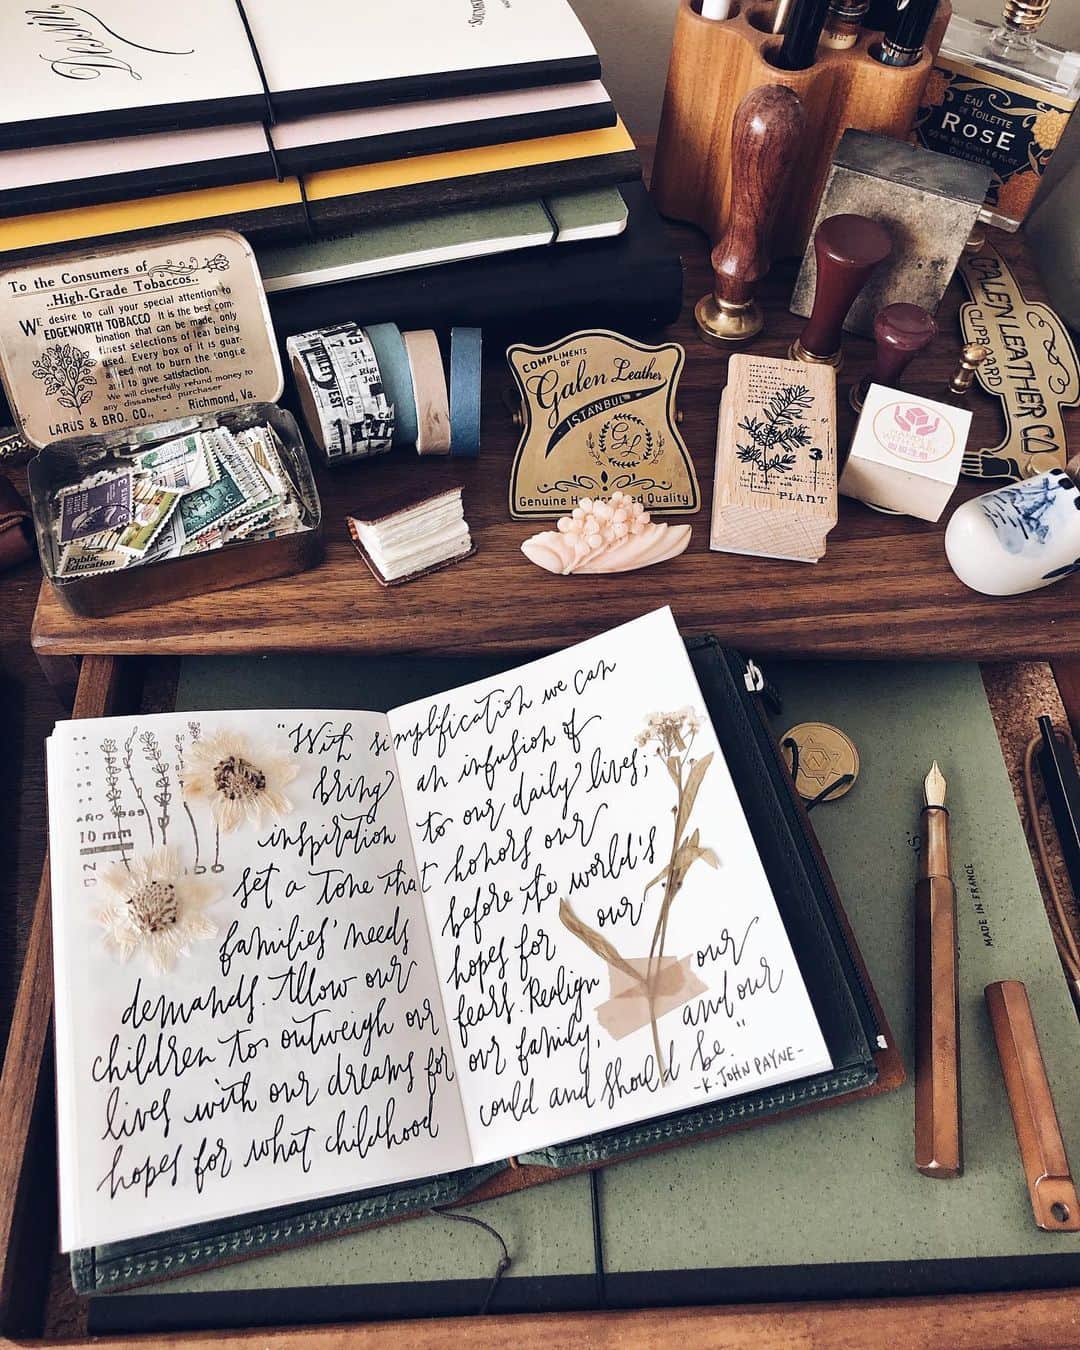 To the Consumers of
..High-Grade Tobaccos..
WE desire to call your special attention to
EDGEWORTH TOBACCO It is the best com-
bination that can be made, only
finest selections of leaf being
used. Every box of it is guar-
teed not to burn the tongue
and to give satisfaction.
We will cheerfully refund money to
any dissatisfied purchaser
LARUS & BRO. CO., - - Richmond, Va.
3 CENTS
Public
Education
COMPLIMENTS OF
Galen Leather
ISTANBUL
Genuine Handcrafted Quality
3
PLANT
EAU
DE TOILETTE
ROSE
GALEN LEATHER CO
CLIPBOARD
10 mm
"With simplification we can
bring an infusion of
inspiration to our daily lives;
set a tone that honors our
families' needs before the world's
demands. Allow our hopes for our
children to outweigh our fears. Realign our
lives with our dreams for our family, and our
hopes for what childhood could and should be."
-K. JOHN PAYNE-
MADE IN FRANCE